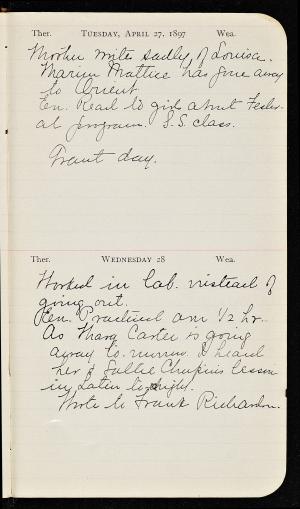 Ther. TUESDAY, APRIL 27, 1897 Wea.
Mother writes sadly of Louisa.
Marion Mattice has gone away
to Orient
Ev. Read to girls about Festiv-
al program. S.S. class.
Grant day.
Ther. WEDNESDAY 28 Wea.
Worked in lab. instead of
going out.
Ev. Practiced an 1/2 hr.
As Mary Carter is going
away to I heard
her & Sallie Chapin's lesson
in Latin to-night.
Wrote to Frank Richardson.